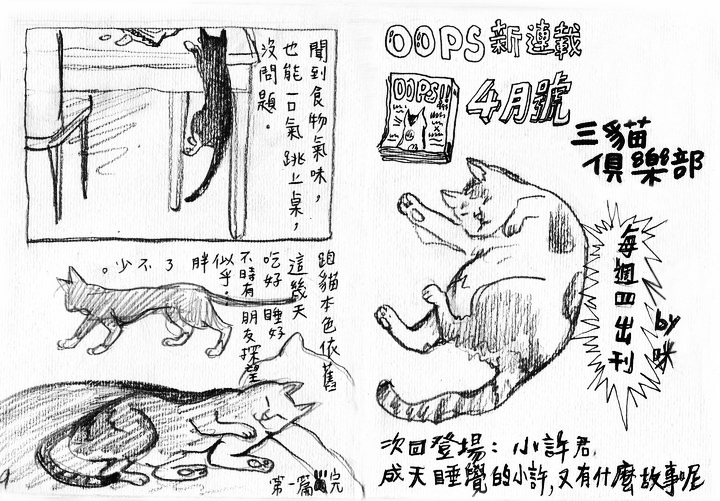 聞到食物氣味，
也能一口氣跳上桌，
沒問題。
貓本色依舊
這幾天
吃好 睡好
不時有朋友探望
似乎
胖了不少。
第一篇完
OOPS新連載
OOPS!!
4月號
三貓
俱樂部
每週四出刊
by 咪
次回登場：小許君
成天睡覺的小許,又有什麼故事呢